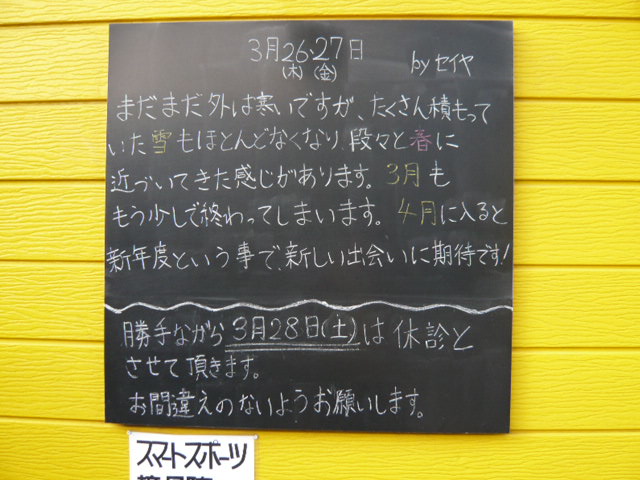 3月26、27日
(木) (金)
by セイヤ
まだまだ外は寒いですが、たくさん積もって
いた雪もほとんどなくなり、段々と春に
近づいてきた感じがあります。3月も
もう少しで終わってしまいます。4月に入ると
新年度という事で、新しい出会いに期待です!
勝手ながら3月28日(土)は休診と
させて頂きます。
お間違えのないようお願いします。
スマートスポーツ